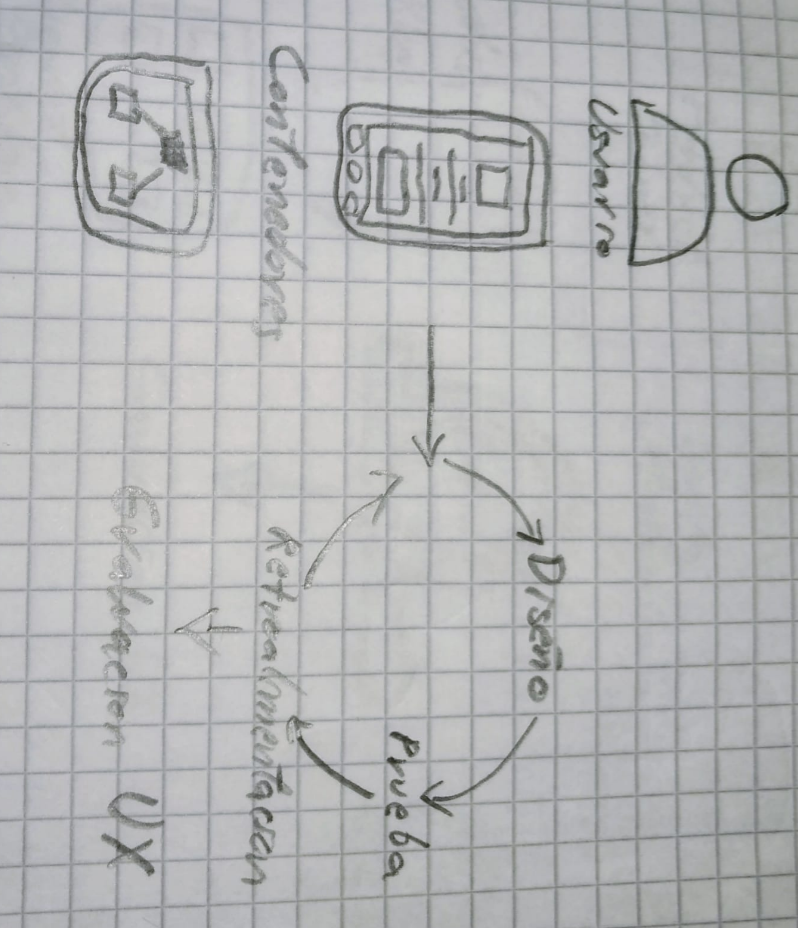 Usuario
Contenedores
Diseño
Prueba
Retroalimentacion
Evaluacion UX